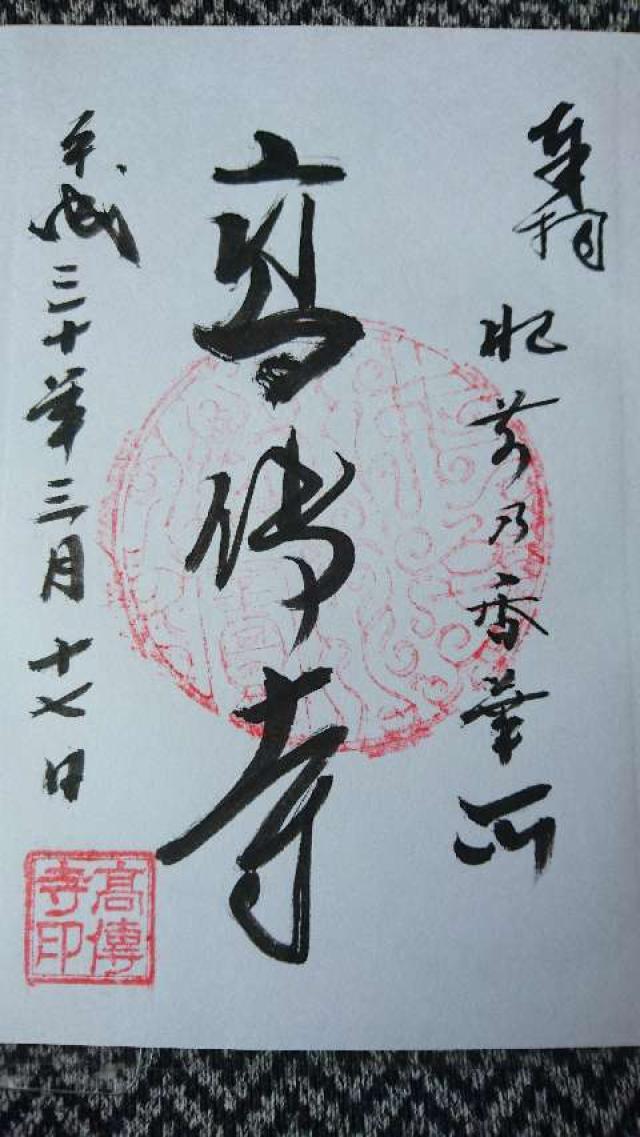 奉拝
肥前乃香華所
高傳寺
平成三十年三月十七日
髙傳寺印